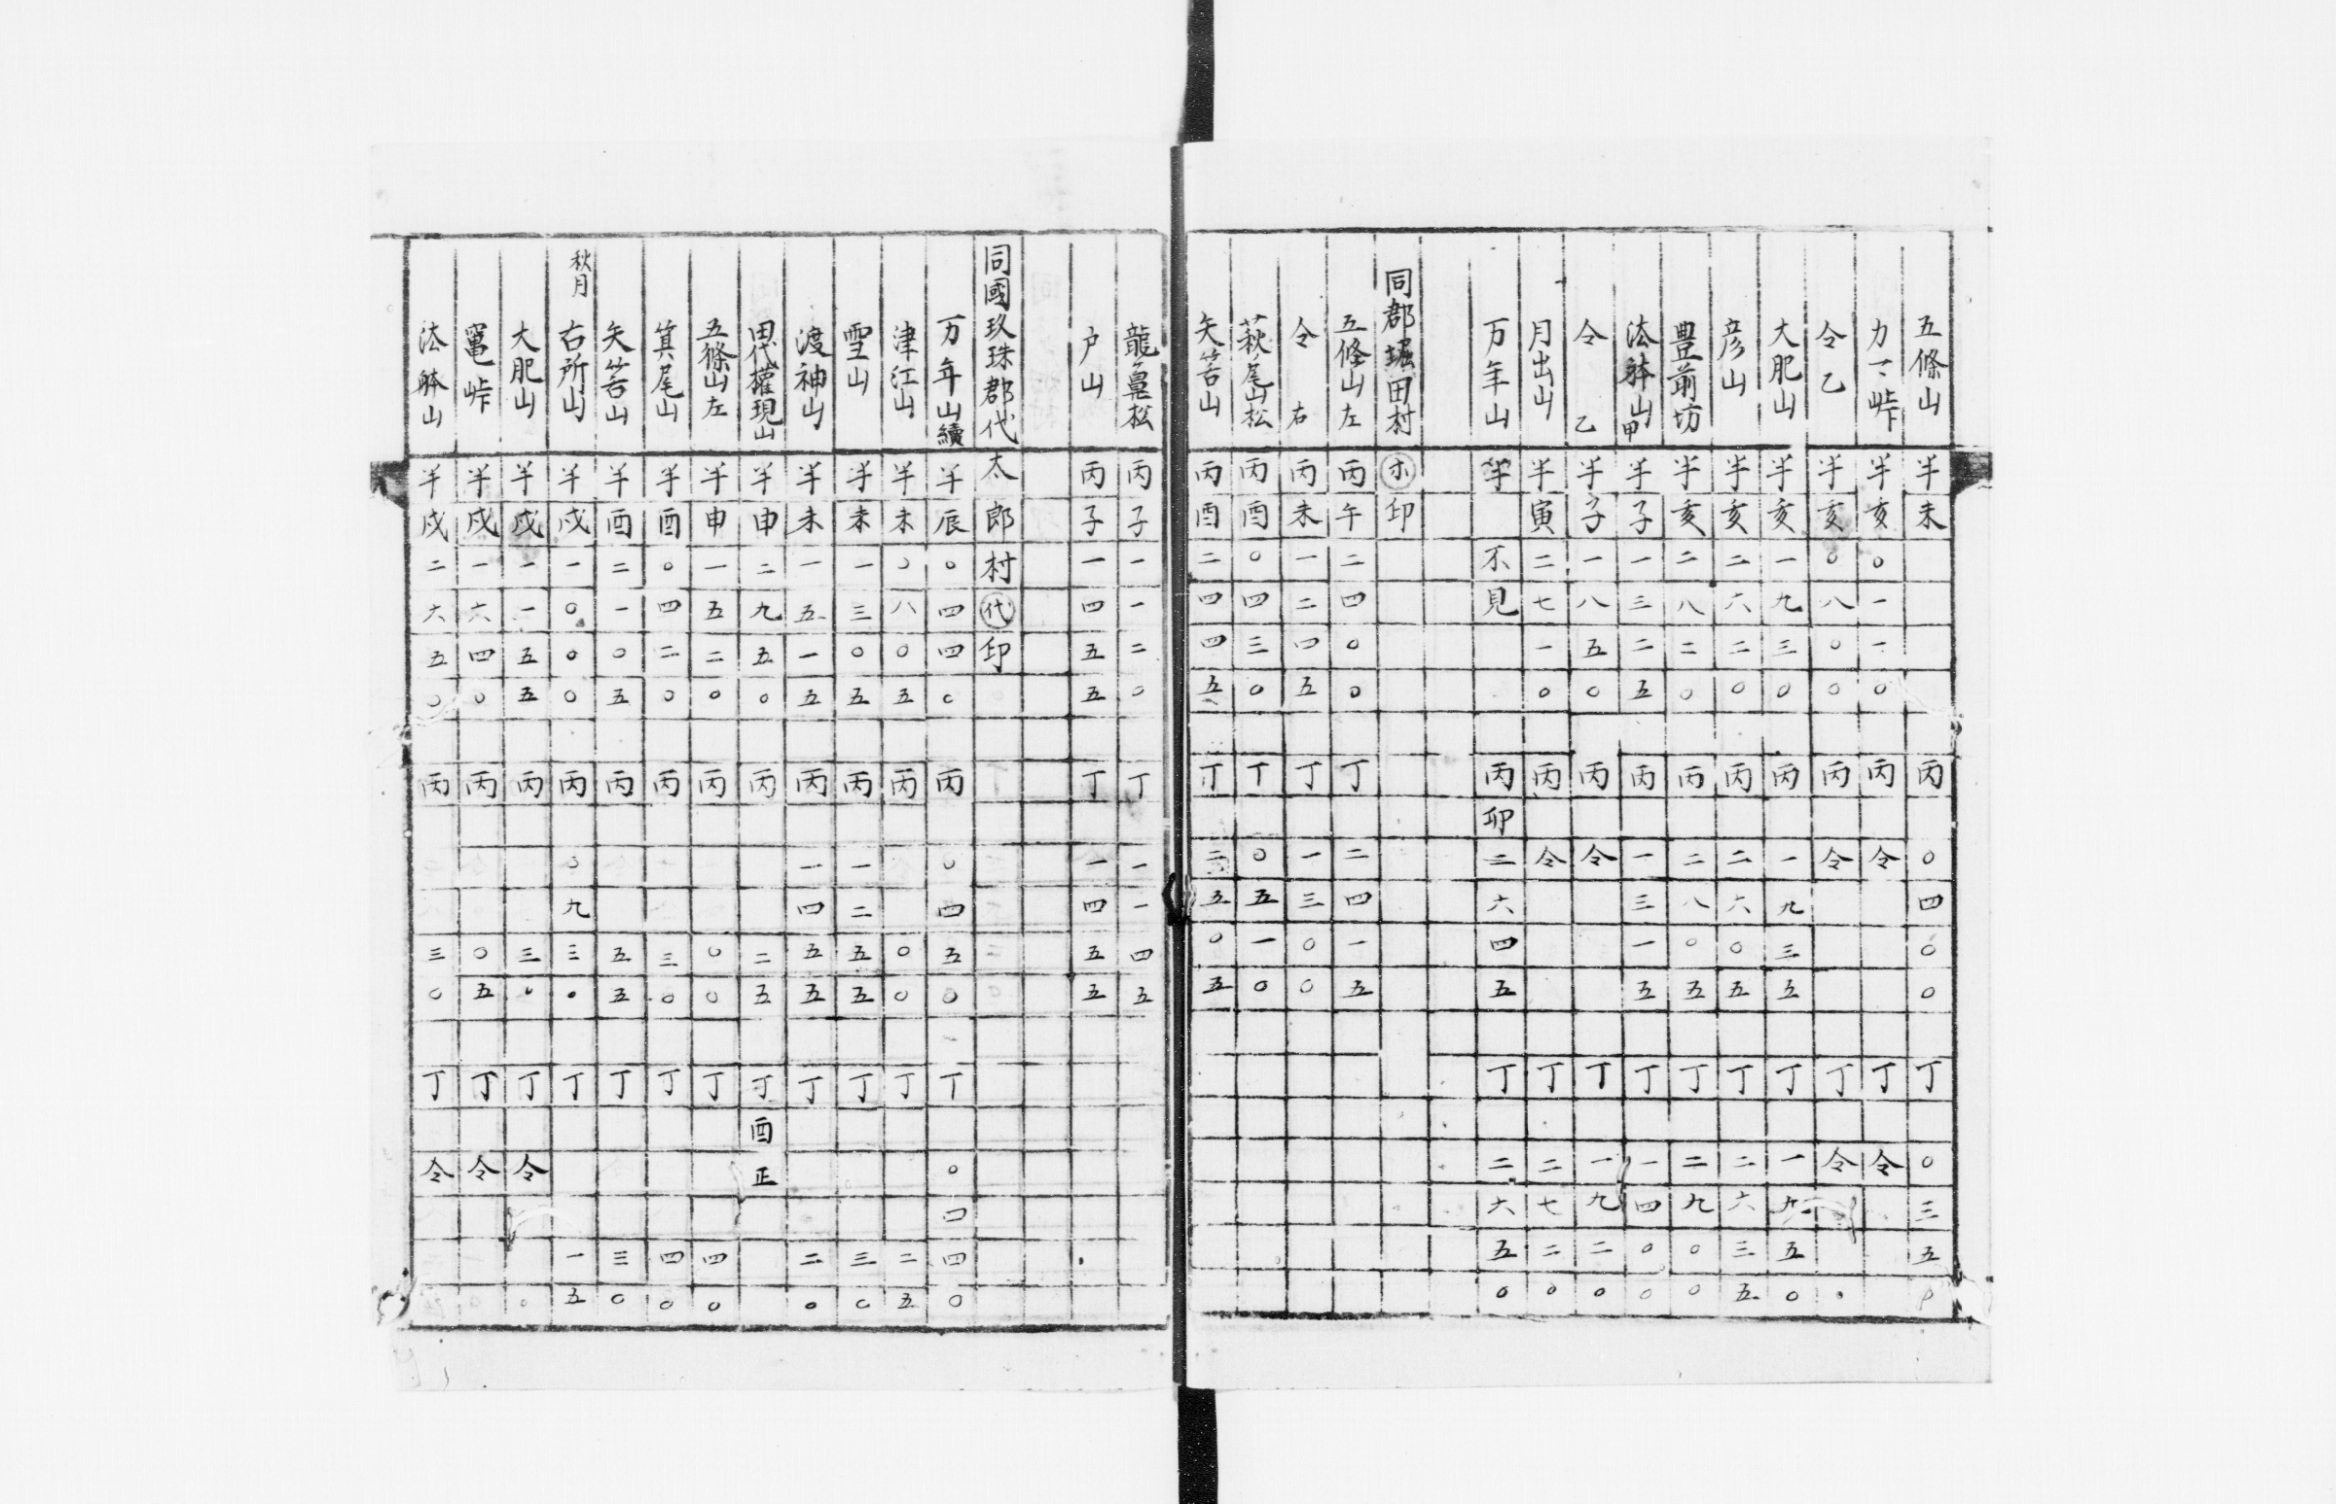 五條山 半未 丙 〇四〇〇 丁 〇三五〇
カマ峠 半亥〇一一〇 丙 令 丁 令
令乙 半亥〇八〇〇 丙 令 丁 令
大肥山 半亥一九三〇 丙 一九三五 丁 一九五〇
彦山 半亥二六二〇 丙 二六〇五 丁 二六三五
豊前坊 半亥二八二〇 丙 二八〇五 丁 二九〇〇
法躰山甲 半子一三二五 丙 一三一五 丁 一四〇〇
令乙 半子一八五〇 丙 令 丁 一九二〇
月出山 半寅二七一〇 丙 令 丁 二七二〇
万年山 半 不見 丙卯二六四五 丁 二六五〇
同郡堀田村 ホ印
五條山左 丙午二四〇〇 丁 二四一五
令右 丙未一二四五 丁 一三〇〇
萩ノ尾山松 丙酉〇四三〇 丁 〇五一〇
矢筈山 丙酉二四四五 丁 二五〇五
龍ノ鼻松 丙子一一二〇 丁 一一四五
戸山 丙子一四五五 丁 一四五五
同國玖珠郡代太郎村 代印
万年山續 半辰〇四四〇 丙 〇四五〇 丁 〇四四〇
津江山 半未〇八〇五 丙 〇〇 丁 二五
雪山 半未一三〇五 丙 一二五五 丁 三〇
渡神山 半未一五一五 丙 一四五五 丁 二〇
田代權現山 半申二九五〇 丙 二五 丁酉正
五條山左 半申一五二〇 丙 〇〇 丁 四〇
箕尾山 半酉〇四二〇 丙 三〇 丁 四〇
矢筈山 半酉二一〇五 丙 五五 丁 三〇
秋月
古所山 半戌一〇〇〇 丙 〇九三〇 丁 一五
大肥山 半戌一一五五 丙 三〇 丁 令
竃峠 半戌一六四〇 丙 〇五 丁 令
法躰山 半戌二六五〇 丙 三〇 丁 令